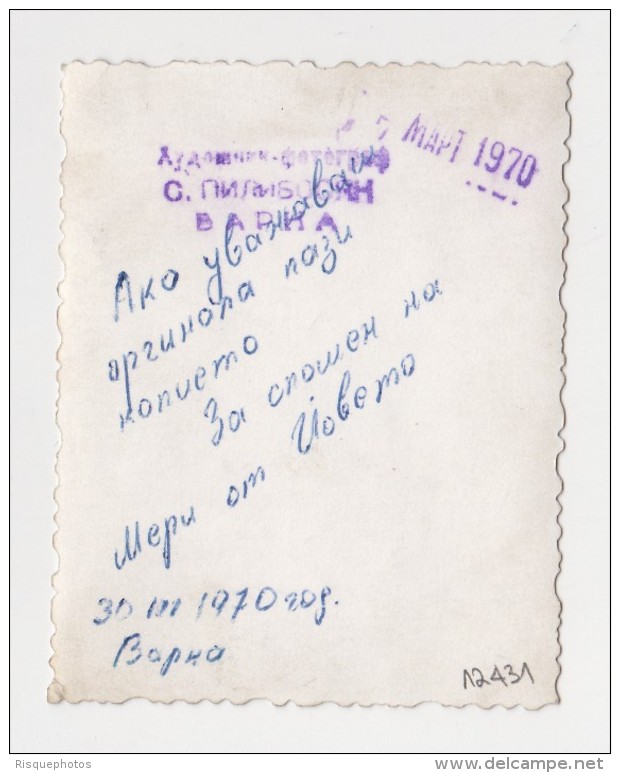 МАРТ 1970
Художник-фотограф
С. ПИЛИБОСЯН
ВАРНА
Ако уважаваш
оргинала пази
копието
За спомен на
Мери от Йовето
30 III 1970 год.
Варна
12431
Risquephotos
delcampe.net